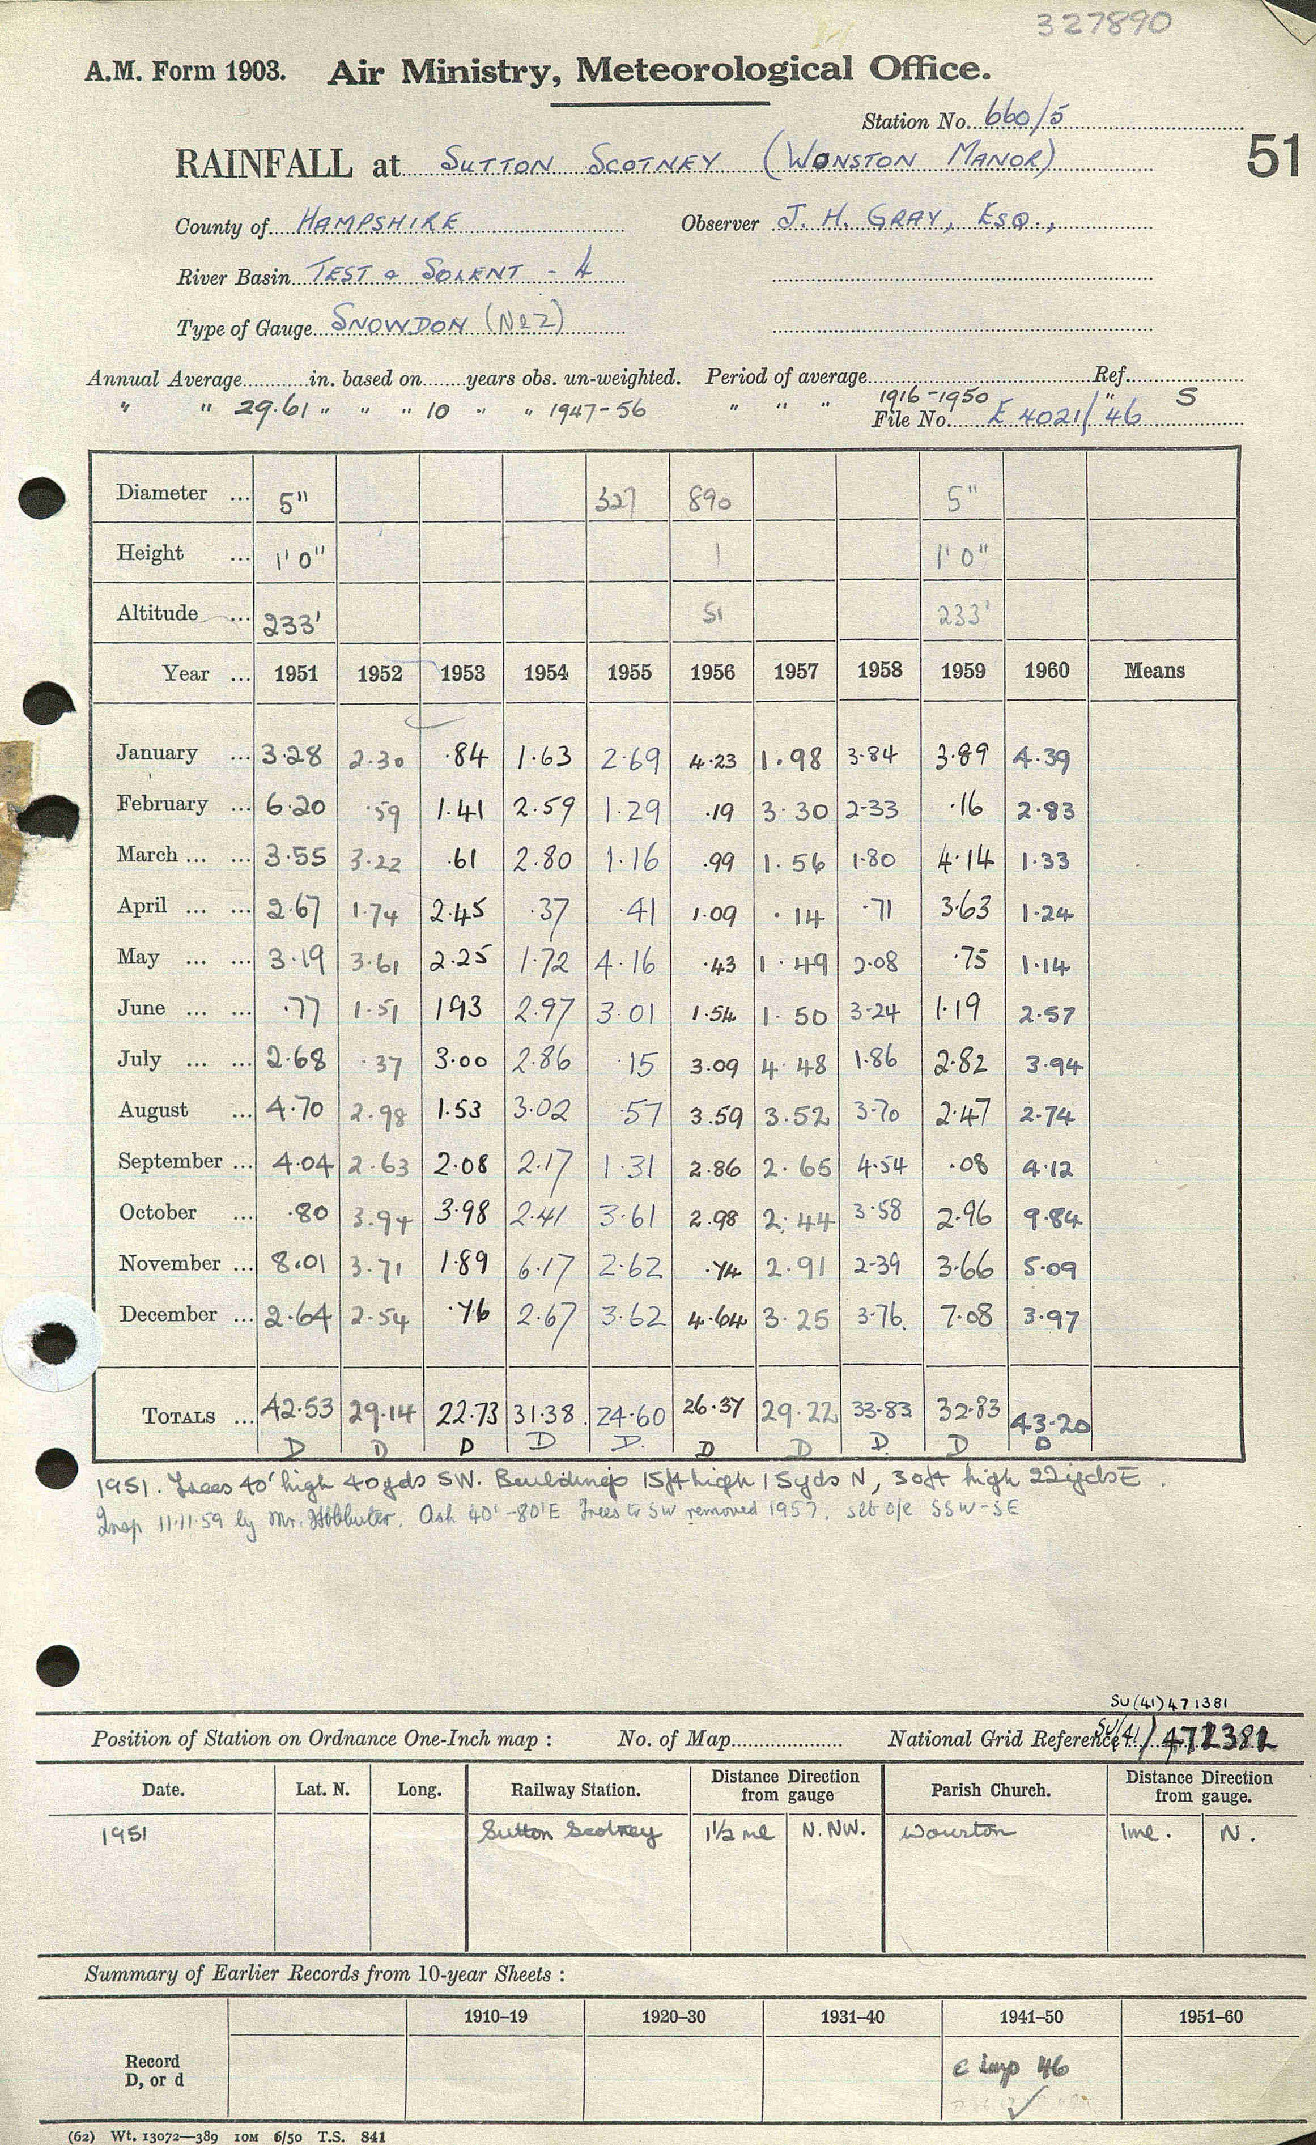 327890
A.M. Form 1903. Air Ministry, Meteorological Office.
Station No. 660/5
RAINFALL at SUTTON SCOTNEY (WONSTON MANOR) 51
County of HAMPSHIRE Observer J. H. GRAY, ESQ.,
River Basin TEST & SOLENT - 4
Type of Gauge SNOWDON (No 2)
Annual Average in. based on years obs. un-weighted. Period of average Ref.
" " 29.61 " " " 10 " " 1947-56 " " " 1916-1950 " S
File No. E 4021/46
Diameter ... 5" 327 890 5"
Height ... 1' 0" 1 1' 0"
Altitude ... 233' 51 233'
Year ... 1951 1952 1953 1954 1955 1956 1957 1958 1959 1960 Means
January ... 3.28 2.30 .84 1.63 2.69 4.23 1.98 3.84 3.89 4.39
February ... 6.20 .59 1.41 2.59 1.29 .19 3.30 2.33 .16 2.83
March ... ... 3.55 3.22 .61 2.80 1.16 .99 1.56 1.80 4.14 1.33
April ... ... 2.67 1.74 2.45 .37 .41 1.09 .14 .71 3.63 1.24
May ... ... 3.19 3.61 2.25 1.72 4.16 .43 1.49 2.08 .75 1.14
June ... ... .77 1.51 1.93 2.97 3.01 1.54 1.50 3.24 1.19 2.57
July ... ... 2.68 .37 3.00 2.86 .15 3.09 4.48 1.86 2.82 3.94
August ... 4.70 2.98 1.53 3.02 .57 3.59 3.52 3.70 2.47 2.74
September ... 4.04 2.63 2.08 2.17 1.31 2.86 2.65 4.54 .08 4.12
October ... .80 3.94 3.98 2.41 3.61 2.98 2.44 3.58 2.96 9.84
November ... 8.01 3.71 1.89 6.17 2.62 .74 2.91 2.39 3.66 5.09
December ... 2.64 2.54 .76 2.67 3.62 4.64 3.25 3.76 7.08 3.97
TOTALS ... 42.53 29.14 22.73 31.38 24.60 26.37 29.22 33.83 32.83 43.20
D D D D D D D D D D
1951. Trees 40' high 40yds SW. Buildings 15ft high 15yds N, 30ft high 22yds E.
Insp 11.11.59 by Mr. Ash 40'-80'E Trees to SW removed 1957. slt o/e SSW-SE
SU(41)471381
Position of Station on Ordnance One-Inch map : No. of Map National Grid Reference SU(41)
Date. Lat. N. Long. Railway Station. Distance Direction from gauge Parish Church. Distance Direction from gauge.
1951 Sutton Scotney 1½ ml N.NW. Wonston 1ml. N.
Summary of Earlier Records from 10-year Sheets :
1910–19 1920–30 1931–40 1941–50 1951–60
Record D, or d c imp 46
(62) Wt. 13072—389 10M 6/50 T.S. 841